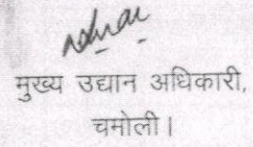 मुख्य उद्यान अधिकारी,
चमोली।